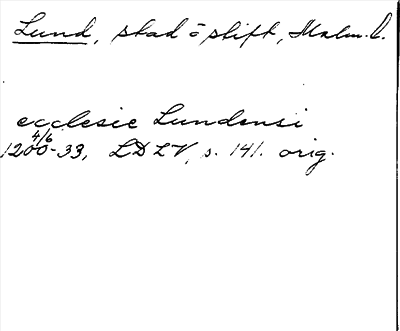 Lund, stad o stift, Malm. l.
ecclesie Lundensi
4/6
1200-33, LDLV, s. 141. orig.